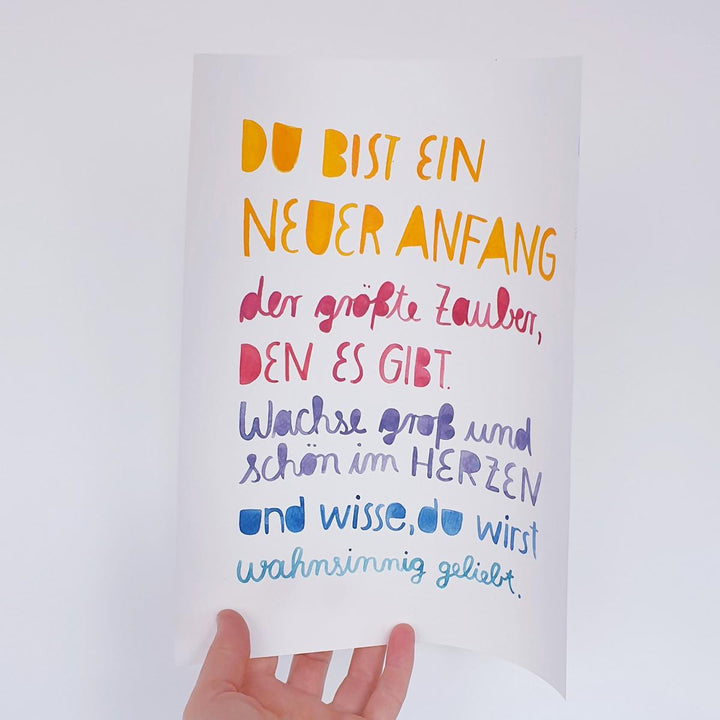 DU BIST EIN
NEUER ANFANG
der größte Zauber,
DEN ES GIBT.
Wachse groß und
schön im HERZEN
und wisse, du wirst
wahnsinnig geliebt.